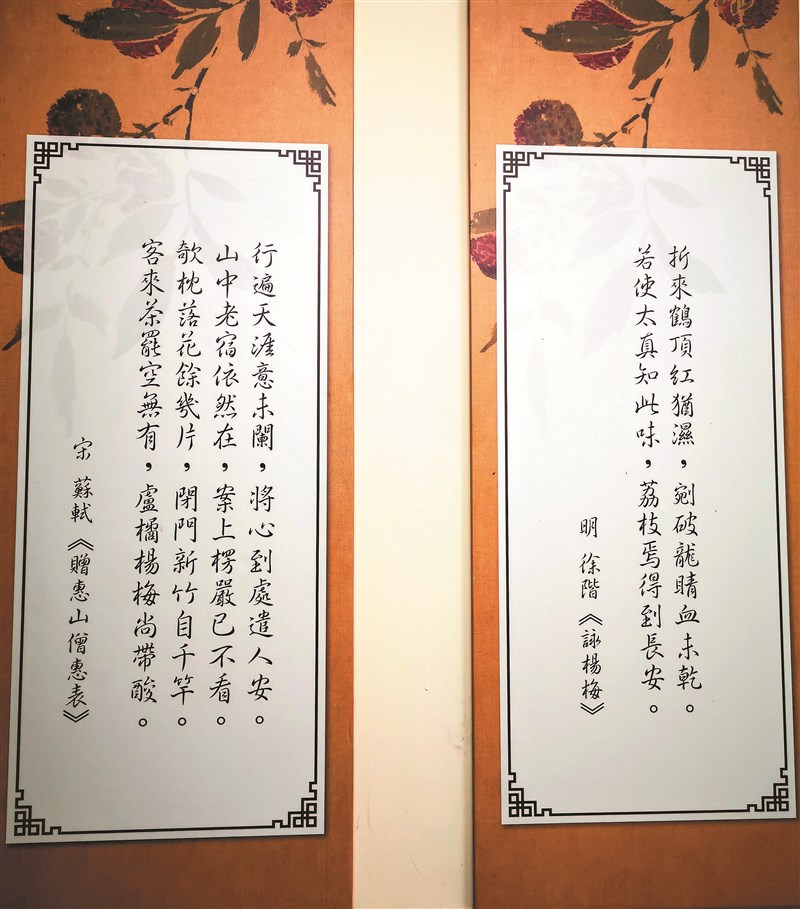 折來鶴頂紅猶濕，剜破龍睛血未乾。
若使太真知此味，荔枝焉得到長安。
明 徐階《詠楊梅》
行遍天涯意未闌，將心到處遣人安。
山中老宿依然在，案上楞嚴已不看。
欹枕落花餘幾片，閉門新竹自千竿。
客來茶罷空無有，盧橘楊梅尚帶酸。
宋 蘇軾《贈惠山僧惠表》